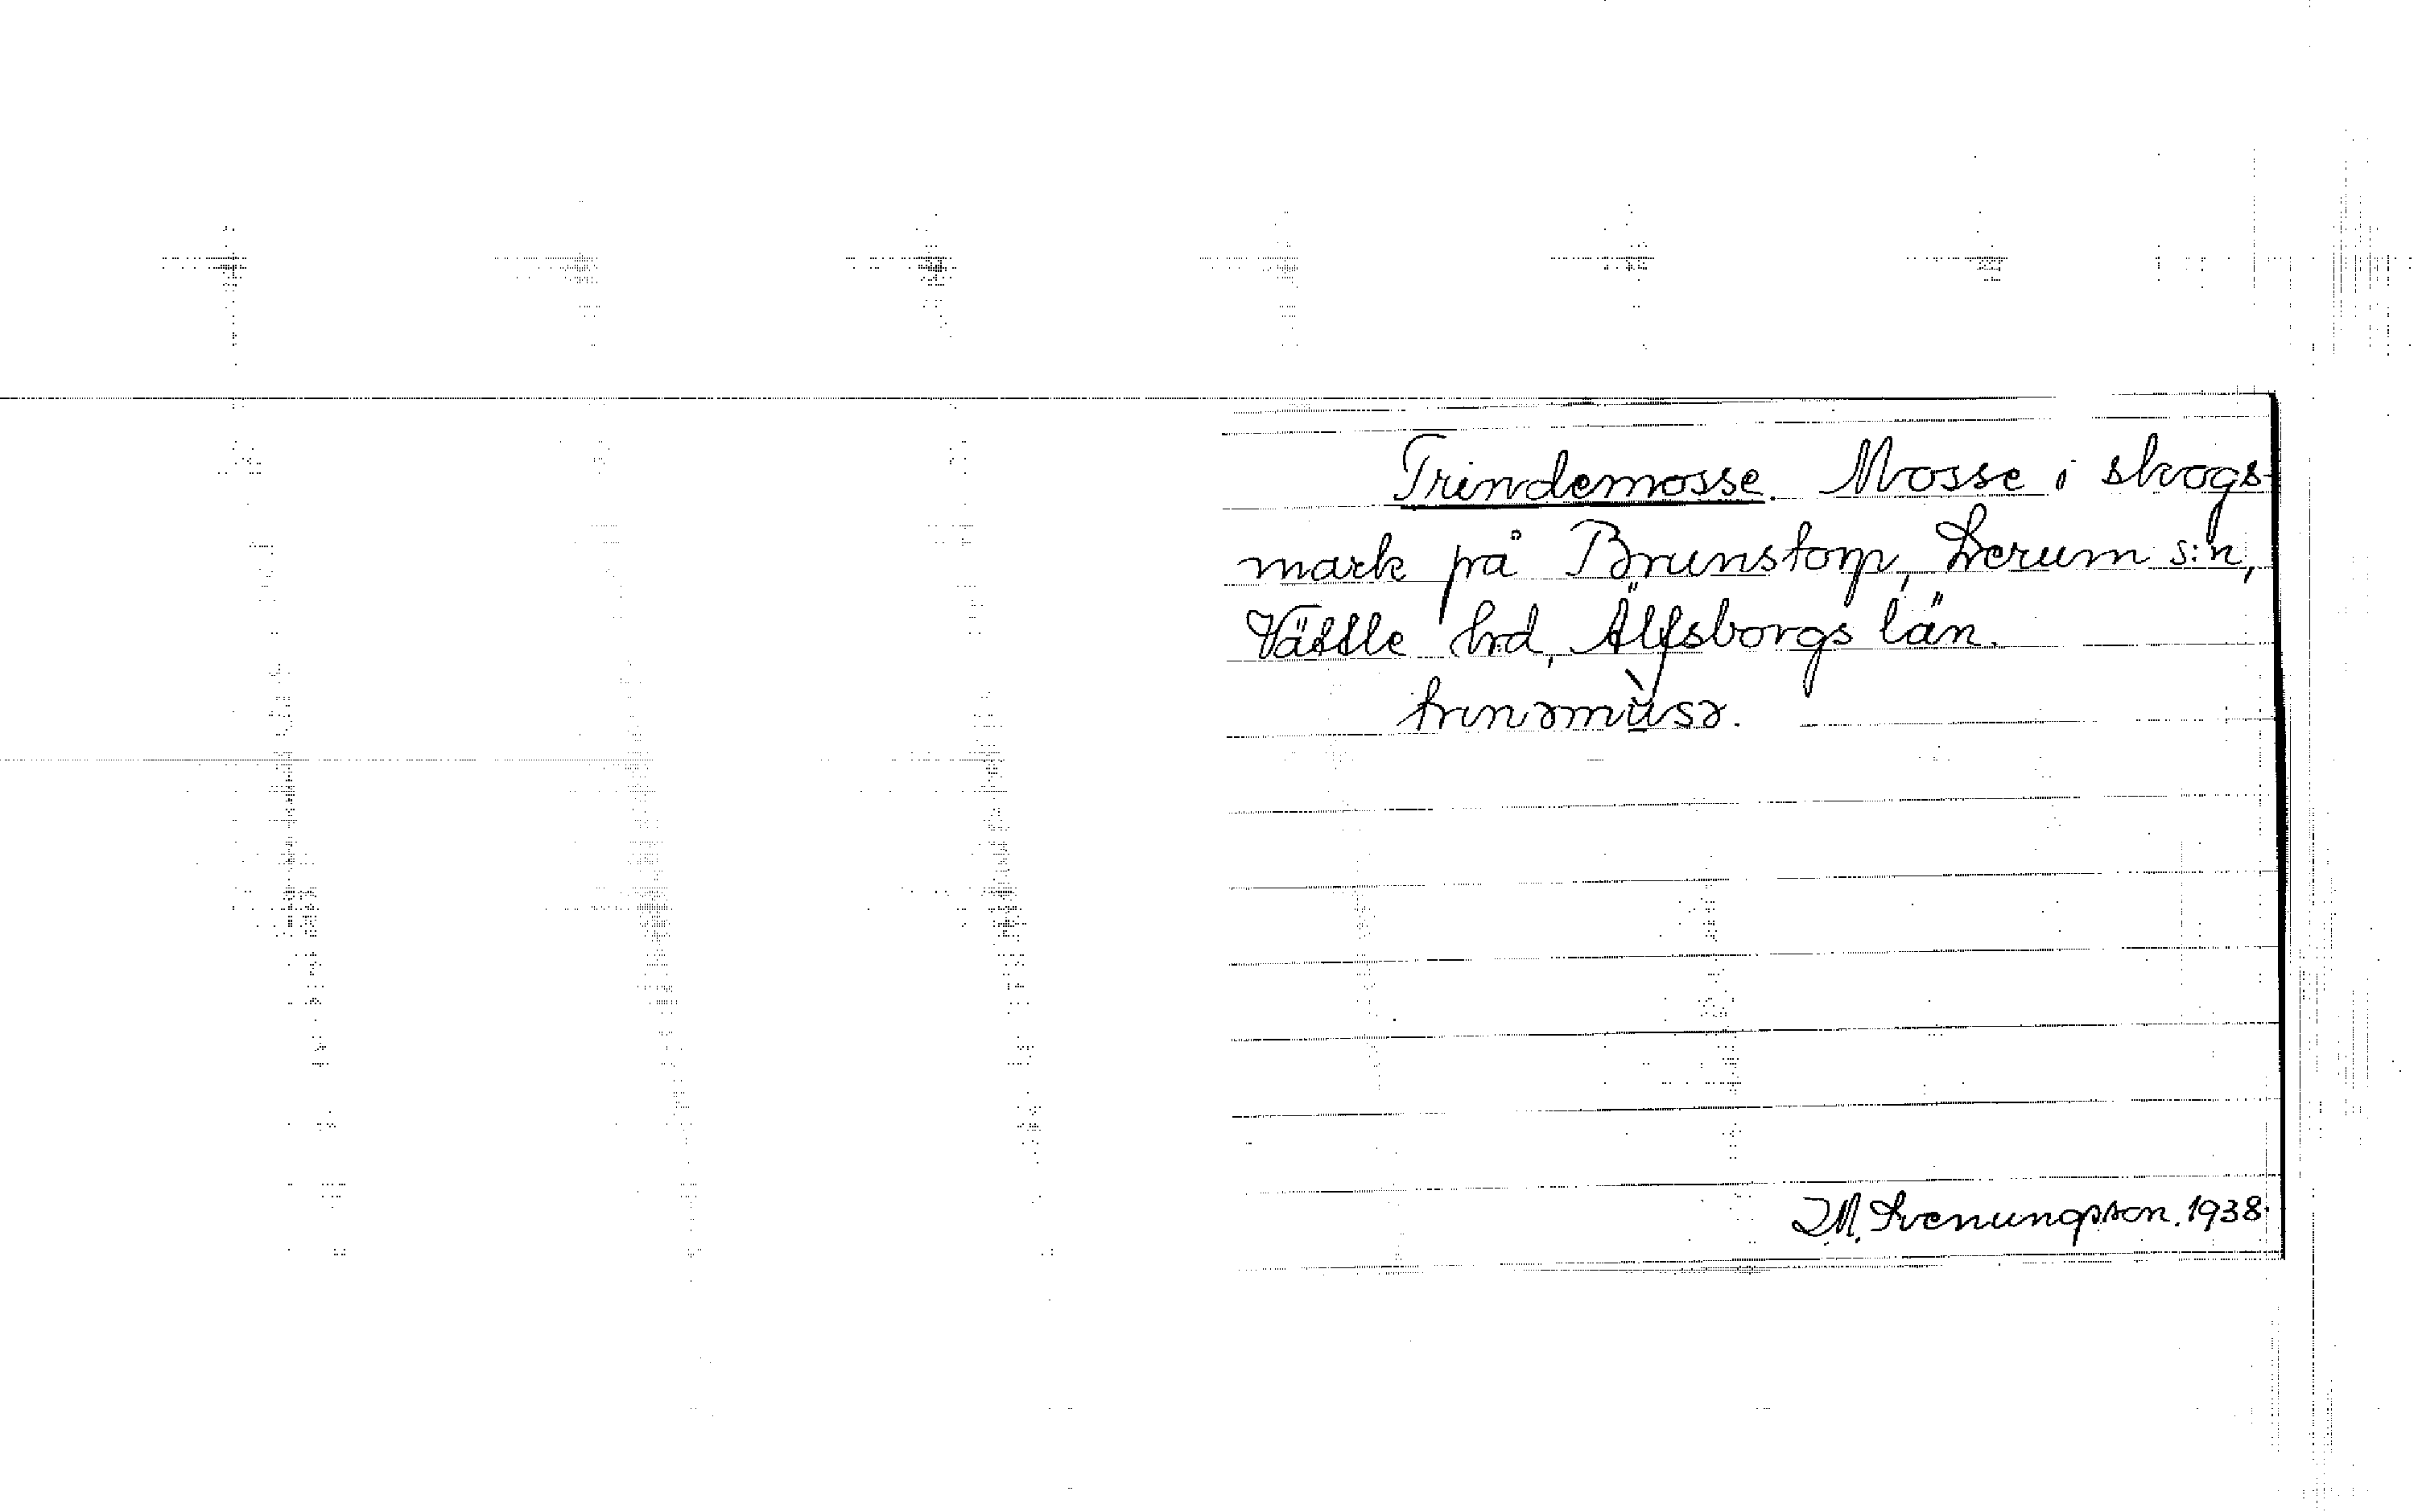 Trindemosse. Mosse i skogs-
mark på Brunstorp, Lerum s:n,
Vättle hd, Älfsborgs län.
I. M. Svenungsson. 1938.